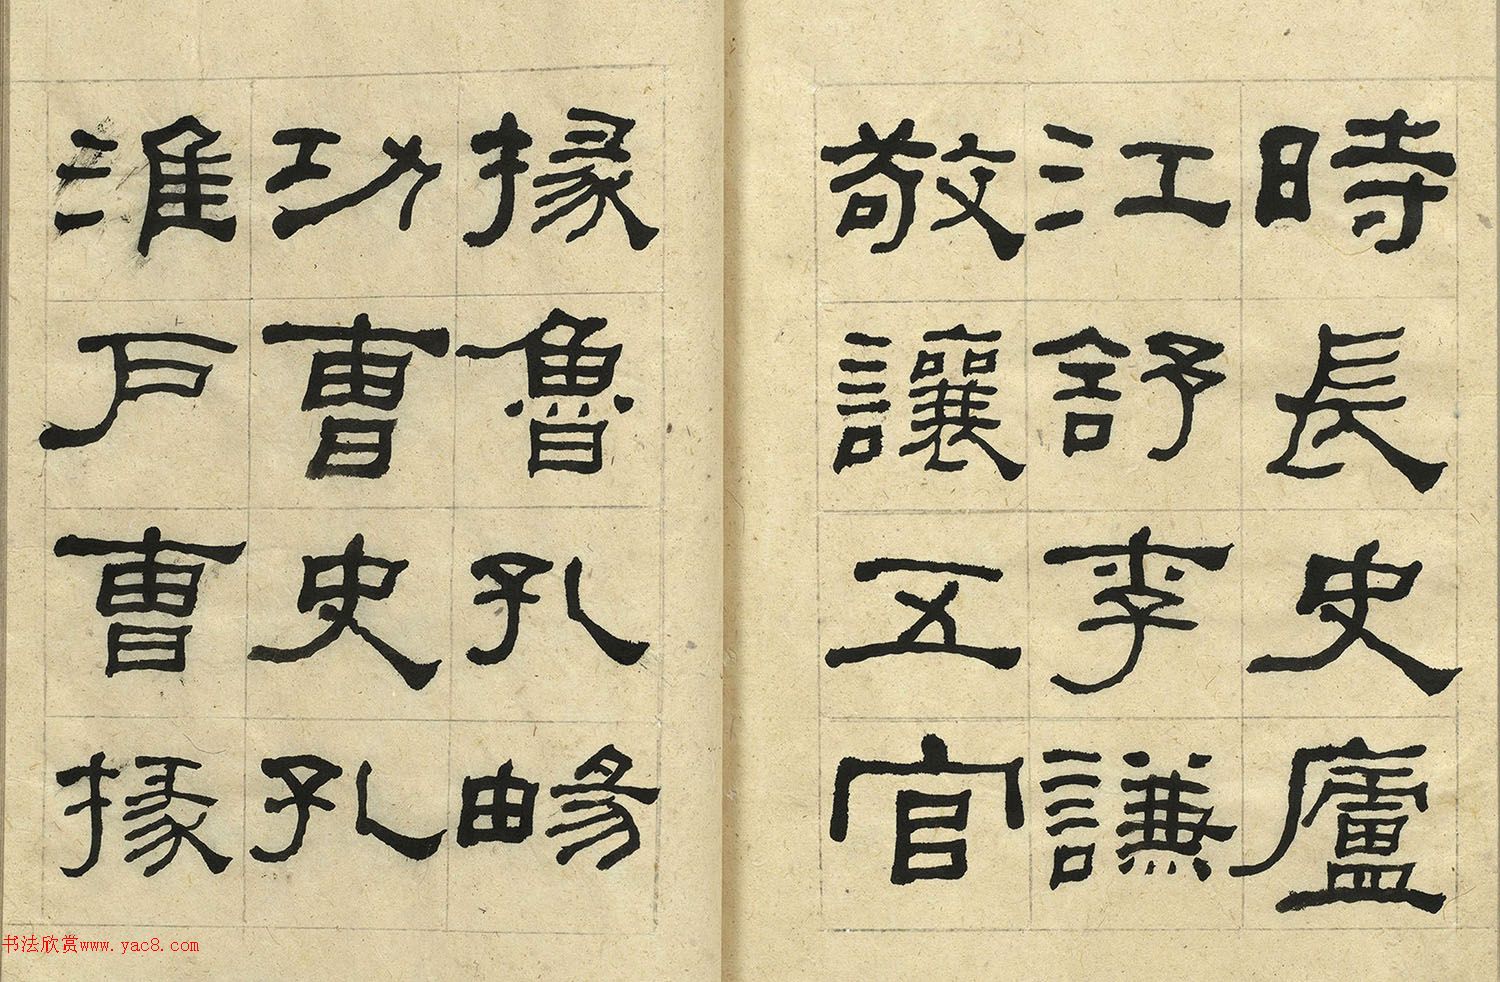 時長史廬
江舒李謙
敬讓五官
掾魯孔暢
功曹史孔
淮戶曹掾
书法欣赏www.yac8.com